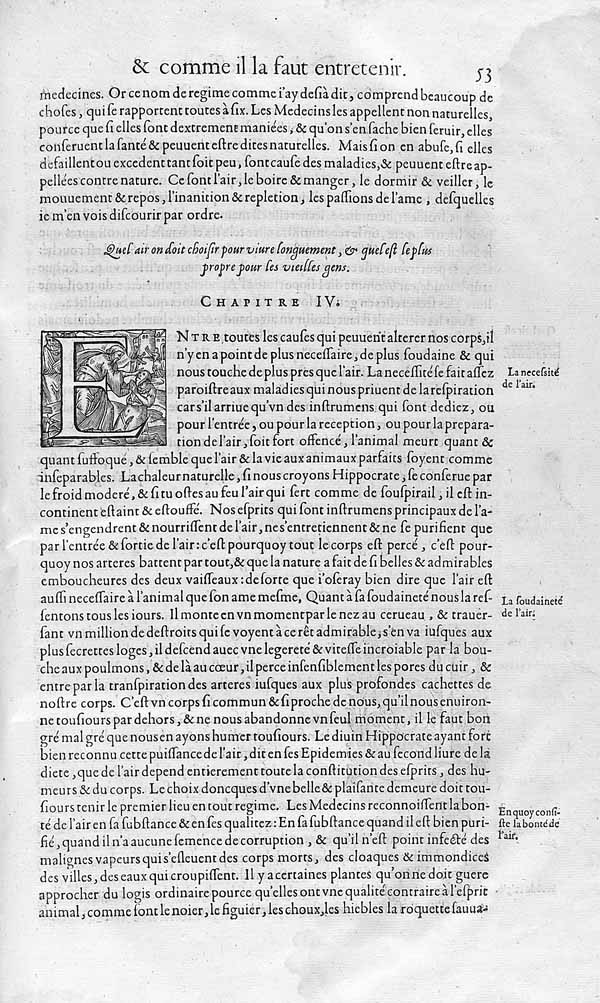 & comme il la faut entretenir. 53
medecines. Or ce nom de regime comme i'ay desia dit, comprend beaucoup de
choses, qui se rapportent toutes à six. Les Medecins les appellent non naturelles,
pource que si elles sont dextrement maniées, & qu'on s'en sache bien seruir, elles
conseruent la santé & peuuent estre dites naturelles. Mais si on en abuse, si elles
defaillent ou excedent tant soit peu, sont cause des maladies, & peuuent estre ap-
pellées contre nature. Ce sont l'air, le boire & manger, le dormir & veiller, le
mouuement & repos, l'inanition & repletion, les passions de l'ame, desquelles
ie m'en vois discourir par ordre.
Quel air on doit choisir pour viure longuement, & quel est le plus
propre pour les vieilles gens.
CHAPITRE IV.
ENTRE toutes les causes qui peuuent alterer nos corps, il
n'y en a point de plus necessaire, de plus soudaine & qui
nous touche de plus pres que l'air. La necessité se fait assez
paroistre aux maladies qui nous priuent de la respiration
car s'il arriue qu'vn des instrumens qui sont dediez, ou
pour l'entrée, ou pour la reception, ou pour la prepara-
tion de l'air, soit fort offencé, l'animal meurt quant &
quant suffoqué, & semble que l'air & la vie aux animaux parfaits soyent comme
inseparables. La chaleur naturelle, si nous croyons Hippocrate, se conserue par
le froid moderé, & si tu ostes au feu l'air qui sert comme de souspirail, il est in-
continent estaint & estouffé. Nos esprits qui sont instrumens principaux de l'a-
me s'engendrent & nourrissent de l'air, ne s'entretiennent & ne se purifient que
par l'entrée & sortie de l'air: c'est pourquoy tout le corps est percé, c'est pour-
quoy nos arteres battent par tout, & que la nature a fait de si belles & admirables
emboucheures des deux vaisseaux: de sorte que i'oseray bien dire que l'air est
aussi necessaire à l'animal que son ame mesme, Quant à sa soudaineté nous la res-
sentons tous les iours. Il monte en vn moment par le nez au cerueau, & trauer-
sant vn million de destroits qui se voyent à ce rêt admirable, s'en va iusques aux
plus secrettes loges, il descend auec vne legereté & vitesse incroiable par la bou-
che aux poulmons, & de là au cœur, il perce insensiblement les pores du cuir, &
entre par la transpiration des arteres iusques aux plus profondes cachettes de
nostre corps. C'est vn corps si commun & si proche de nous, qu'il nous enuiron-
ne tousiours par dehors, & ne nous abandonne vn seul moment, il le faut bon
gré mal gré que nous en ayons humer tousiours. Le diuin Hippocrate ayant fort
bien reconnu cette puissance de l'air, dit en ses Epidemies & au second liure de la
diete, que de l'air depend entierement toute la constitution des esprits, des hu-
meurs & du corps. Le choix doncques d'vne belle & plaisante demeure doit tou-
siours tenir le premier lieu en tout regime. Les Medecins reconnoissent la bon-
té de l'air en sa substance & en ses qualitez: En sa substance quand il est bien puri-
fié, quand il n'a aucune semence de corruption, & qu'il n'est point infecté des
malignes vapeurs qui s'esleuent des corps morts, des cloaques & immondices
des villes, des eaux qui croupissent. Il y a certaines plantes qu'on ne doit guere
approcher du logis ordinaire pource qu'elles ont vne qualité contraire à l'esprit
animal, comme sont le noier, le figuier, les choux, les hiebles la roquette sauua-
La necessité
de l'air.
La soudaineté
de l'air.
En quoy consi-
ste la bonté de
l'air.